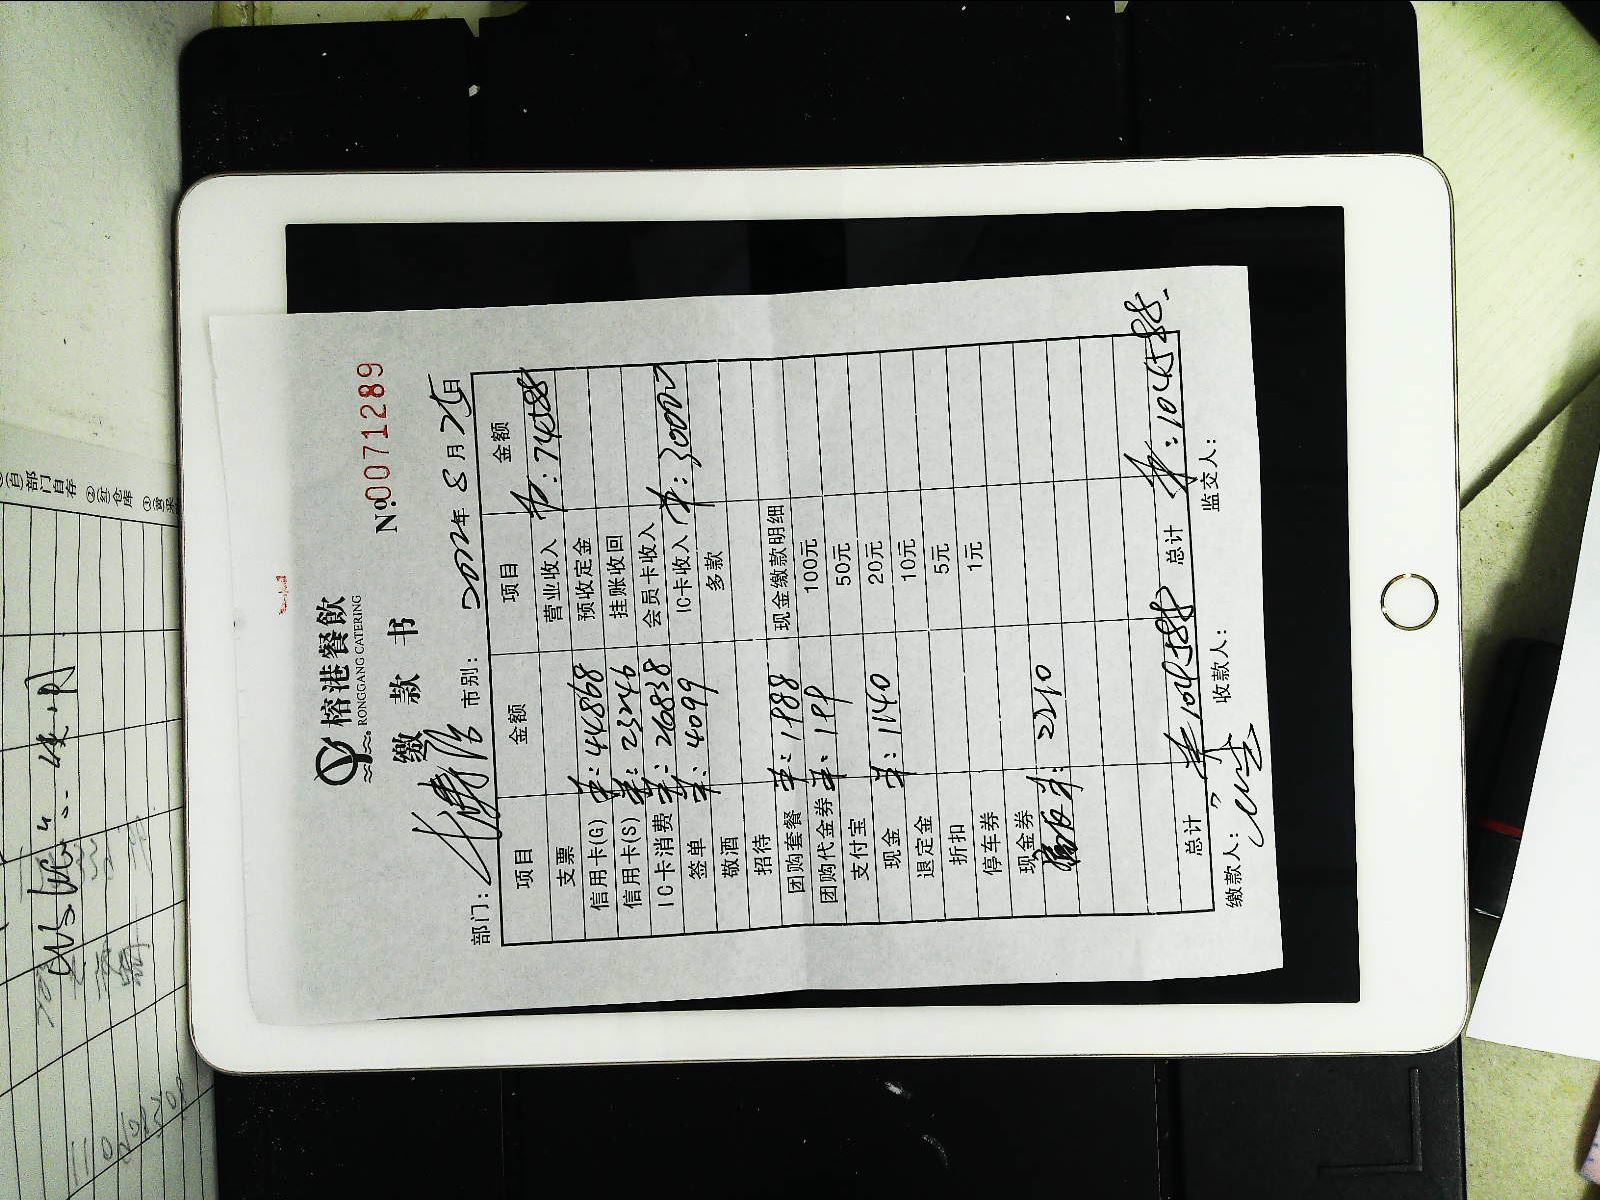 榕港餐飲
RONGGANG CATERING
缴 款 书 №0071289
部门： 市别： 年 8 月 25 日
项目 金额 项目 金额
支票 营业收入 ¥:74588
信用卡(G) ¥:44868 预收定金
信用卡(S) ¥:23246 挂账收回
IC卡消费 ¥:26838 会员卡收入
签单 ¥:4099 IC卡收入 ¥:30000
敬酒 多款
招待
团购套餐 ¥:1988 现金缴款明细
团购代金券 ¥:199 100元
支付宝 50元
现金 ¥:1140 20元
退定金 10元
折扣 5元
停车券 1元
现金券
¥:2210
总计 ¥104588 总计 ¥:104588.
缴款人： 收款人： 监交人：
部门自存
仓库